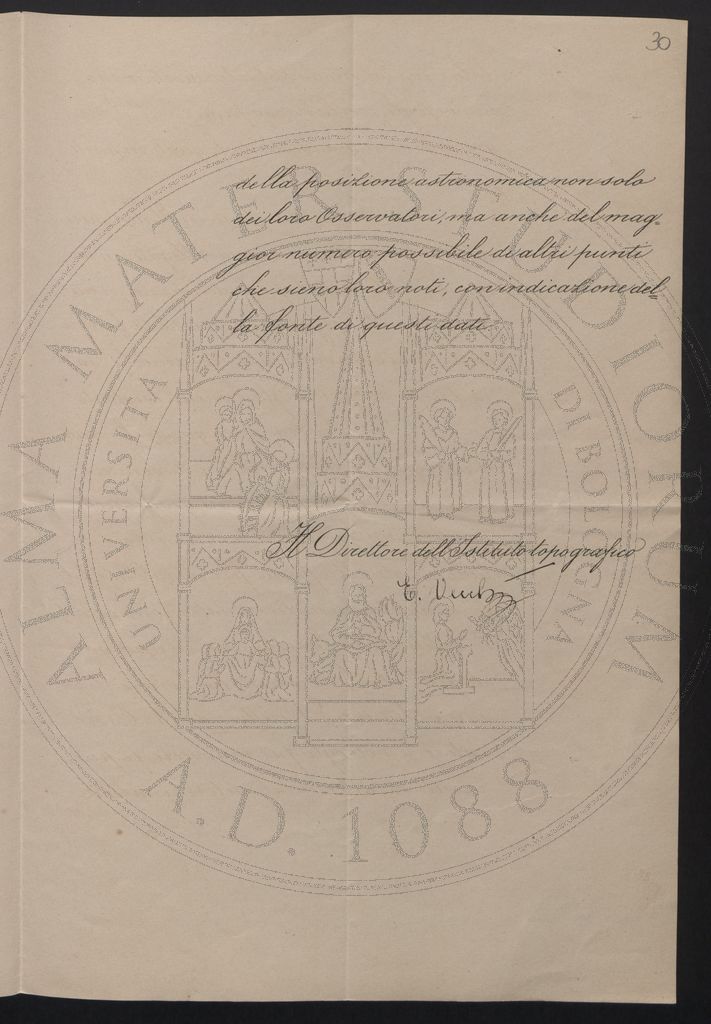 30
della posizione astronomica non solo
dei loro Osservatori, ma anche del mag-
gior numero possibile di altri punti
che sieno loro noti, con indicazione del-
la fonte di questi dati.
Il Direttore dell'Istituto topografico
E.
ALMA MATER STUDIORUM
UNIVERSITA DI BOLOGNA
A.D. 1088